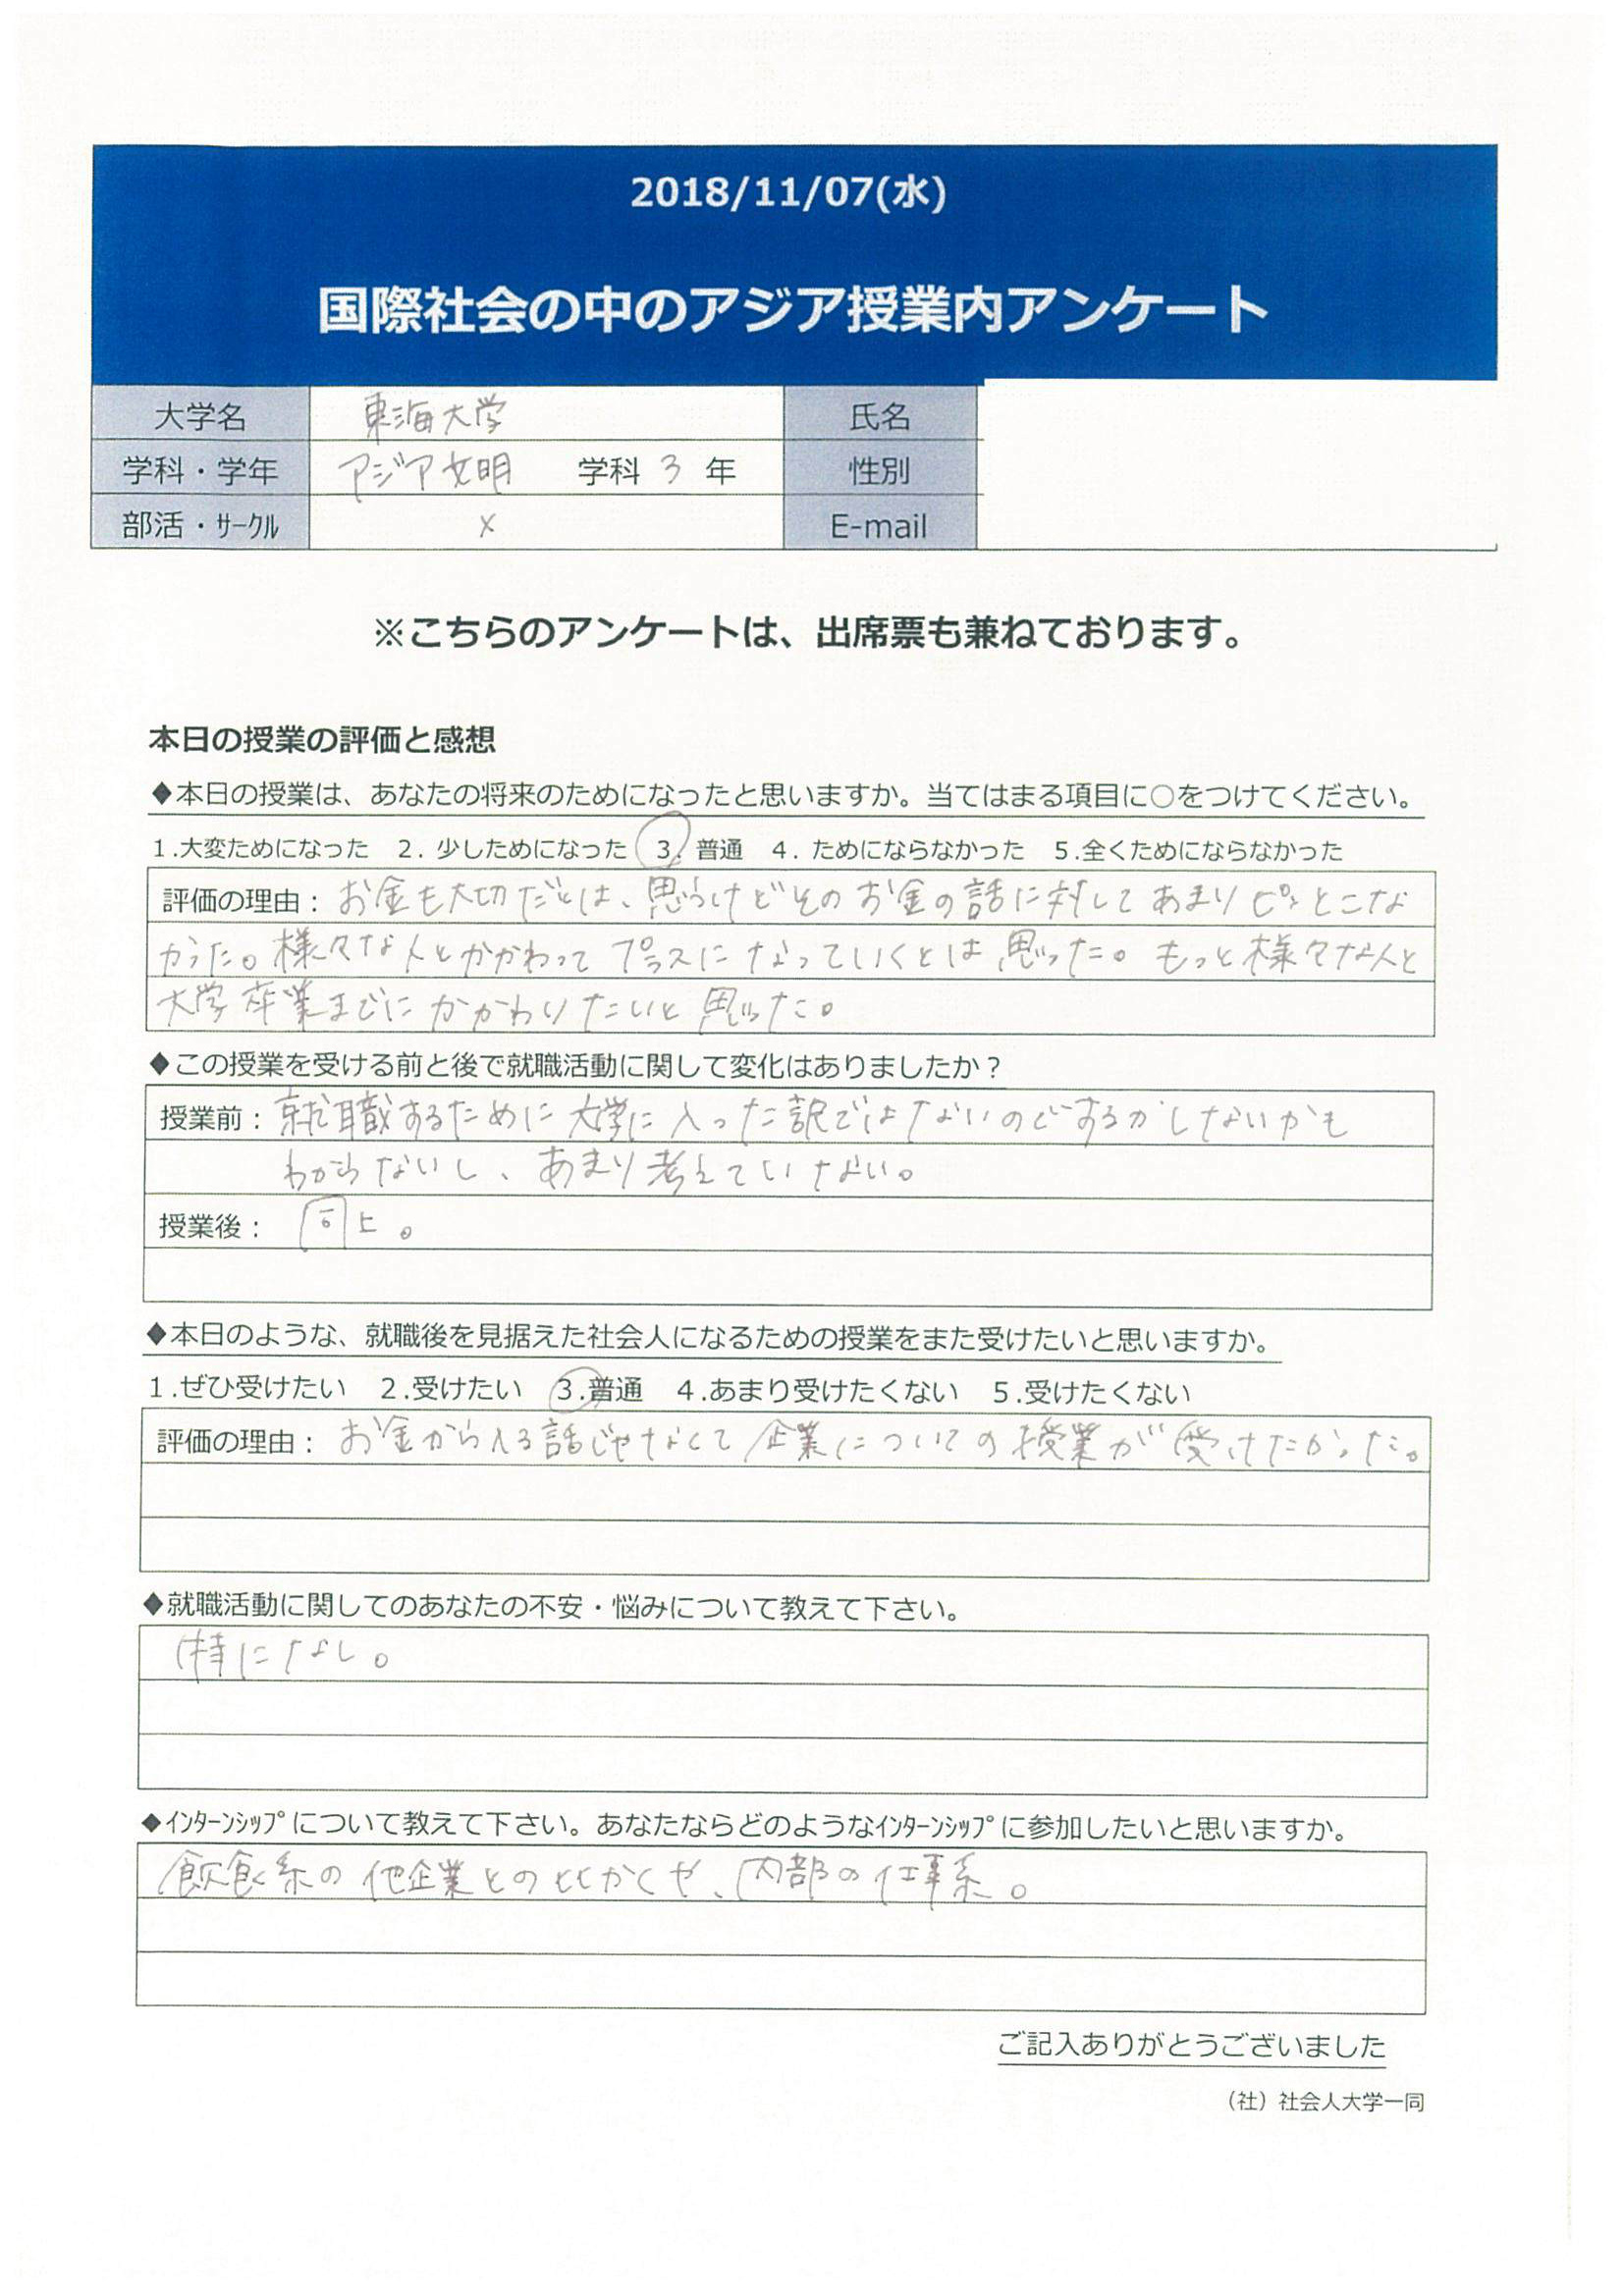 2018/11/07(水)
国際社会の中のアジア授業内アンケート
大学名 東海大学 氏名
学科・学年 アジア文明 学科 3 年 性別
部活・ｻｰｸﾙ × E-mail
※こちらのアンケートは、出席票も兼ねております。
本日の授業の評価と感想
◆本日の授業は、あなたの将来のためになったと思いますか。当てはまる項目に○をつけてください。
1.大変ためになった 2. 少しためになった 3. 普通 4. ためにならなかった 5.全くためにならなかった
評価の理由：お金も大切だとは、思うけどそのお金の話に対してあまりピンとこな
かった。様々な人とかかわってプラスになっていくとは思った。もっと様々な人と
大学卒業までにかかわりたいと思った。
◆この授業を受ける前と後で就職活動に関して変化はありましたか？
授業前：就職するために大学に入った訳ではないのでするかしないかも
わからないし、あまり考えていない。
授業後： 同上。
◆本日のような、就職後を見据えた社会人になるための授業をまた受けたいと思いますか。
1.ぜひ受けたい 2.受けたい 3.普通 4.あまり受けたくない 5.受けたくない
評価の理由：お金から入る話じゃなくて企業についての授業が受けたかった。
◆就職活動に関してのあなたの不安・悩みについて教えて下さい。
特になし。
◆ｲﾝﾀｰﾝｼｯﾌﾟについて教えて下さい。あなたならどのようなｲﾝﾀｰﾝｼｯﾌﾟに参加したいと思いますか。
飲食系の他企業との比かくや、内部の仕事系。
ご記入ありがとうございました
（社）社会人大学一同